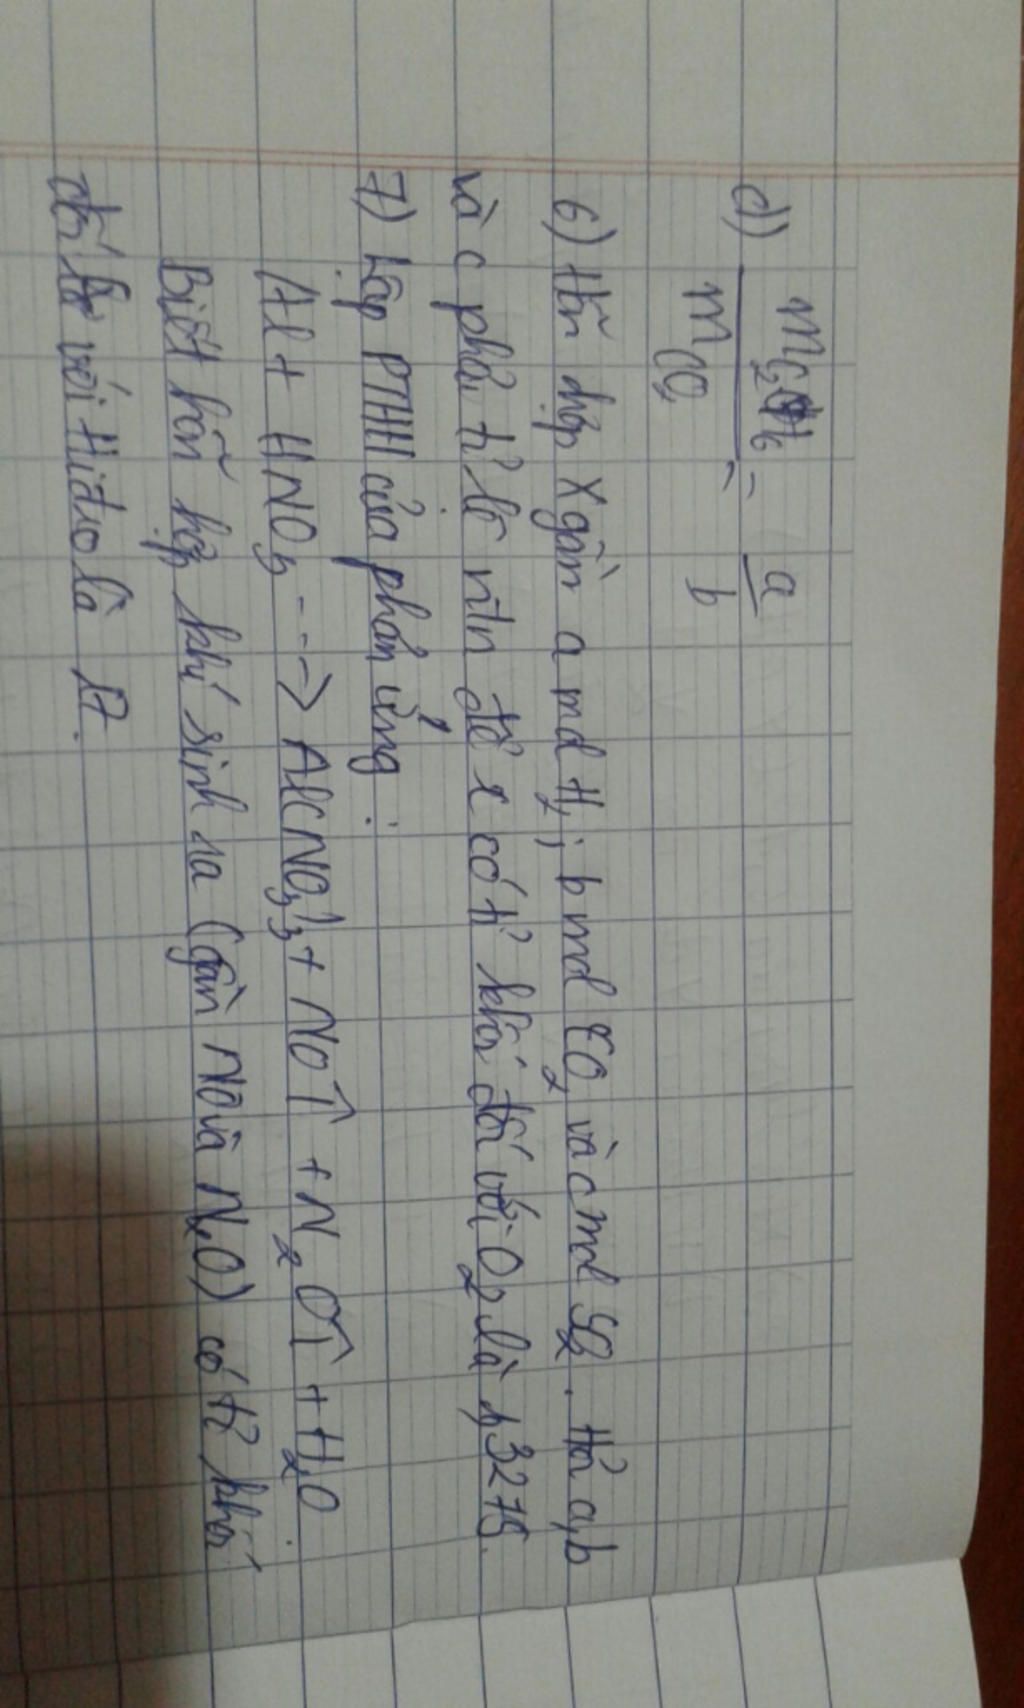 d) mC₂H₆ / mCO₂ = a / b
6) Hỗn hợp X gồm a mol H₂; b mol CO₂ và c mol SO₂. Hỏi a, b
và c phải tỉ lệ ntn để X có tỉ khối đối với O₂ là 1,3275.
7) Lập PTHH của phản ứng:
Al + HNO₃ ---> Al(NO₃)₃ + NO↑ + N₂O↑ + H₂O
Biết hỗn hợp khí sinh ra (gồm NO và N₂O) có tỉ khối
đối với Hiđro là 17.